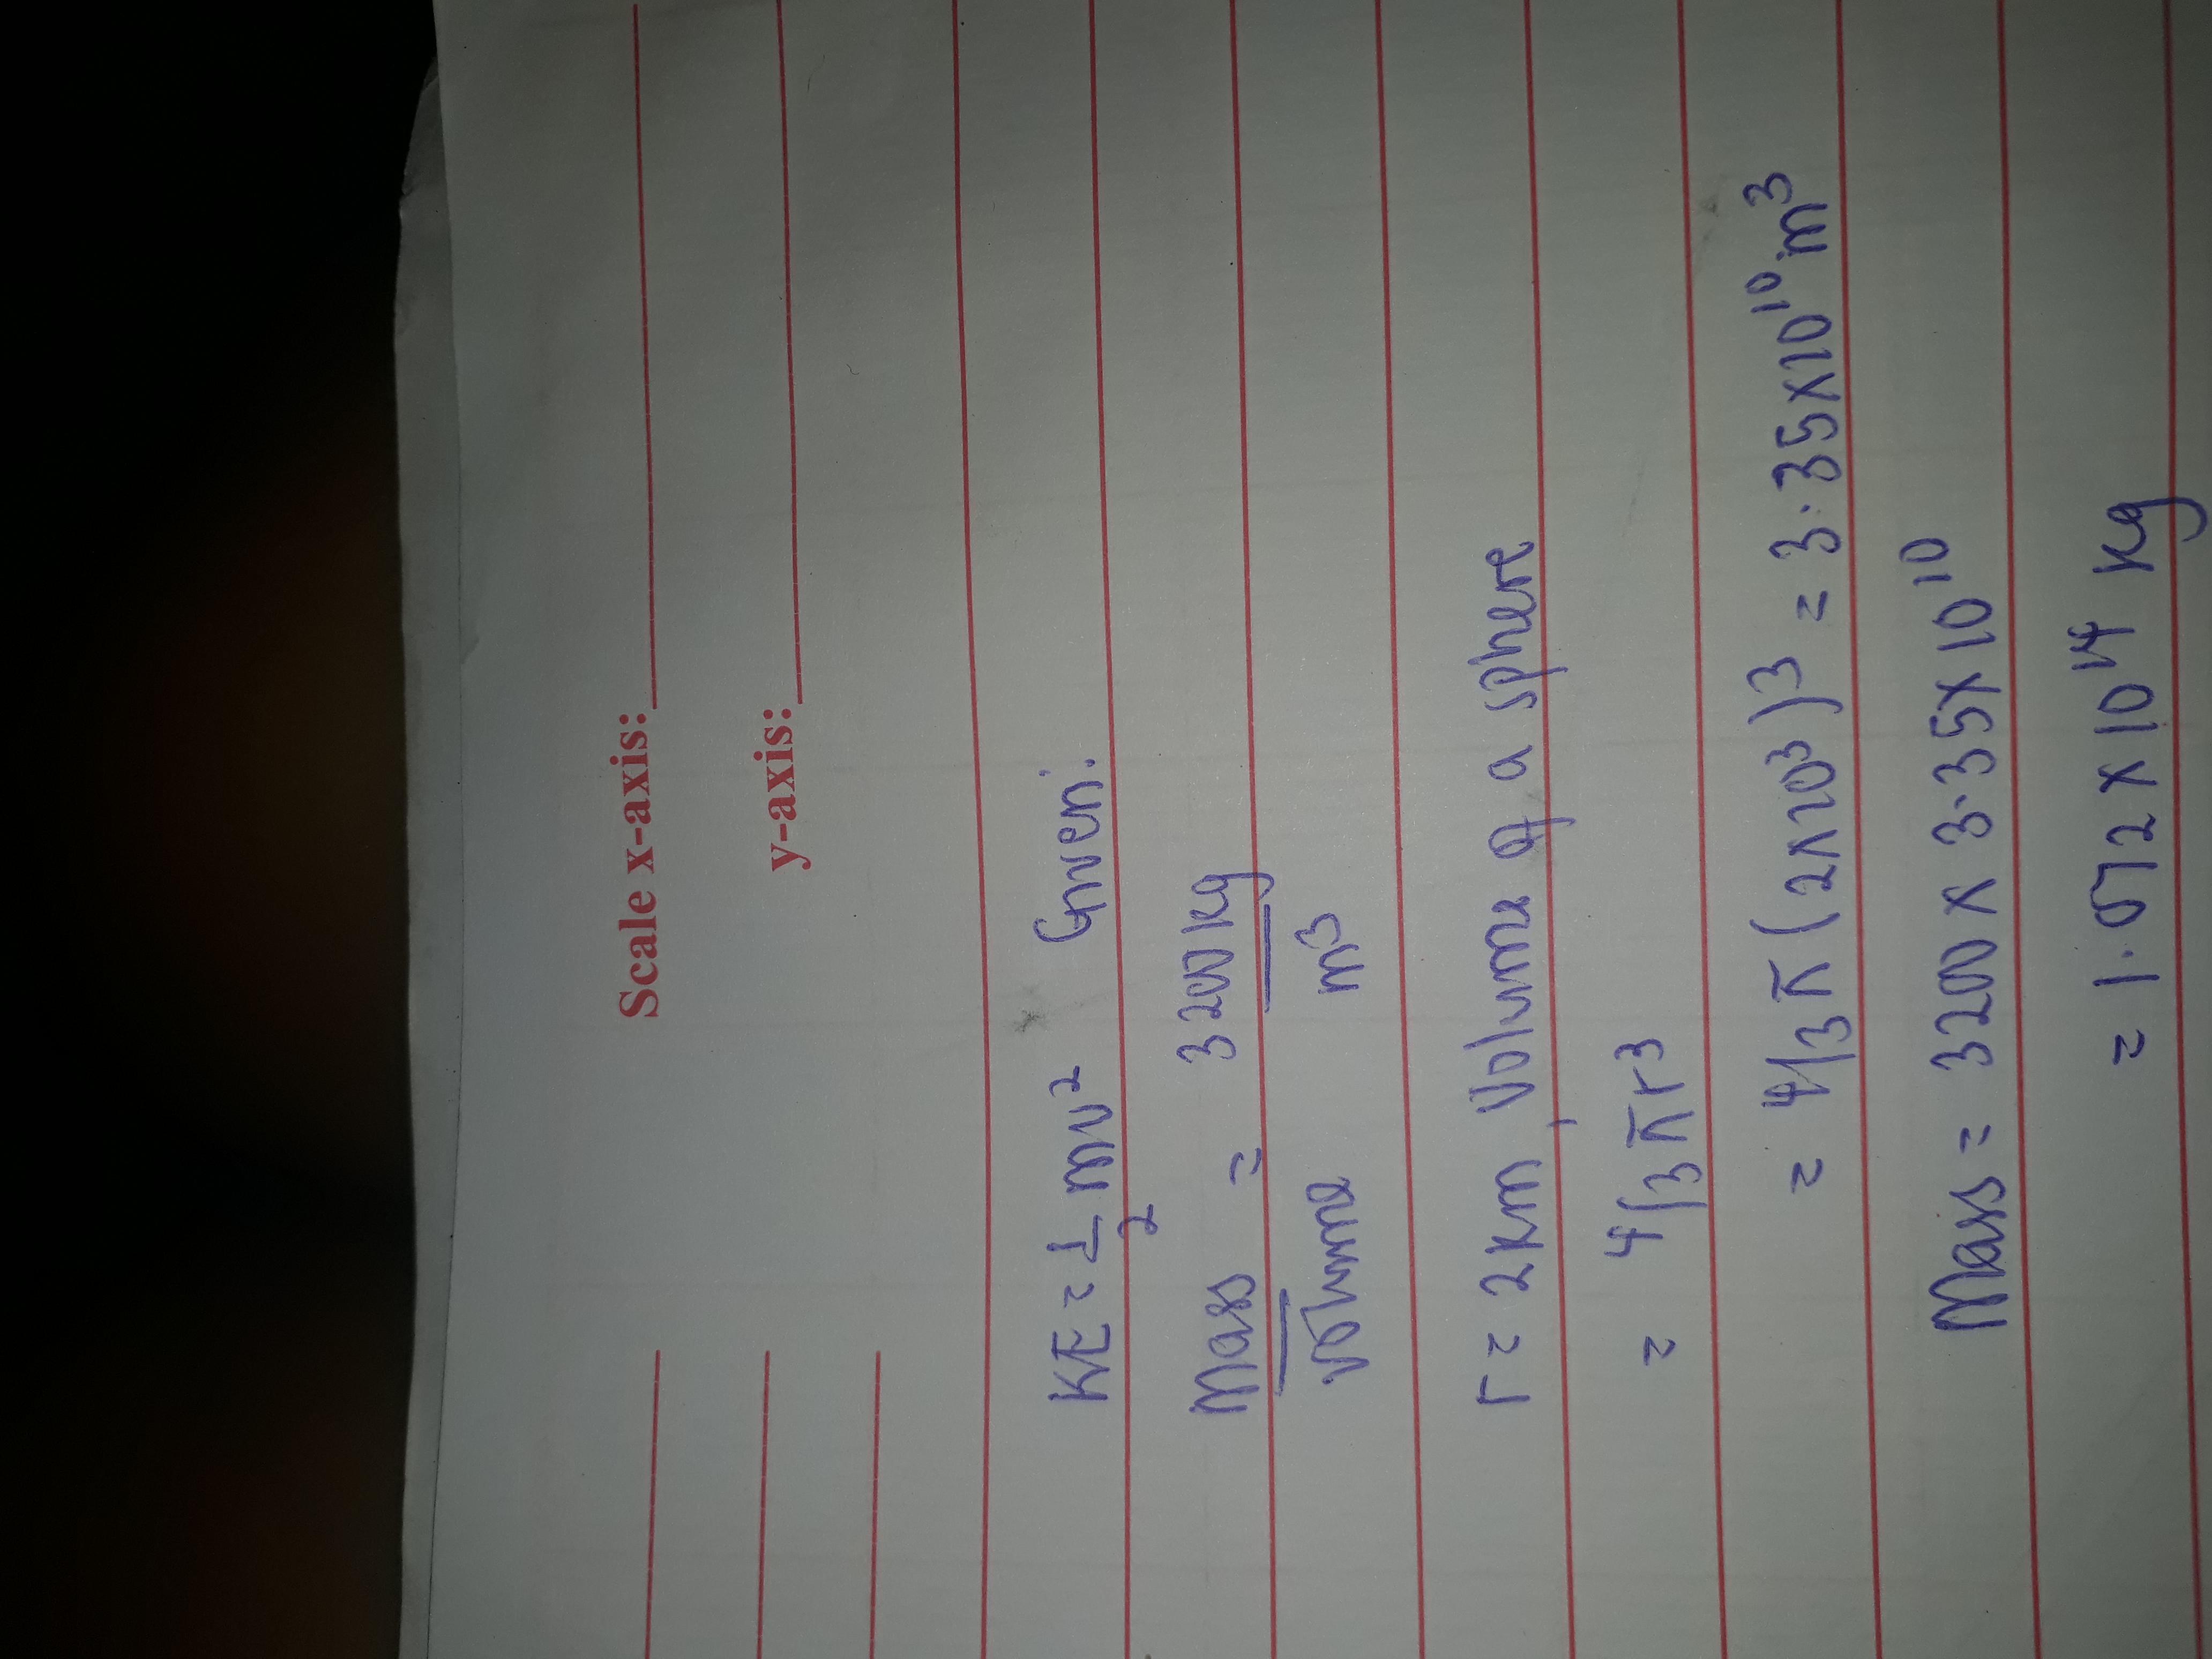 Scale x-axis:
y-axis:
KE = 1/2 mv² Given:
Mass/volume = 3200kg/m³
r = 2km, Volume of a sphere
= 4/3 πr³
= 4/3 π (2x10³)³ = 3.35x10¹⁰m³
Mass = 3200 x 3.35x10¹⁰
= 1.072 x 10¹⁴ kg